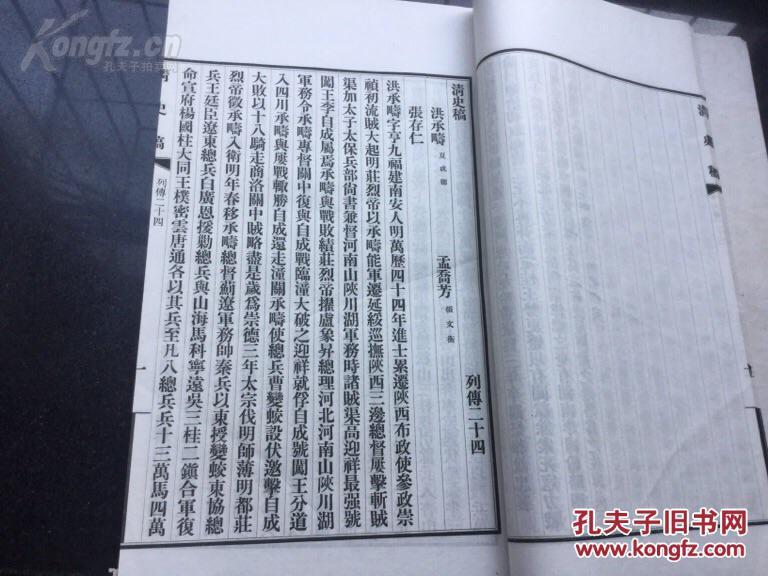 清史稿
列傳二十四
洪承疇 夏成德
孟喬芳 張文衡
張存仁
洪承疇字亨九福建南安人明萬歷四十四年進士累遷陝西布政使參政崇
禎初流賊大起明莊烈帝以承疇能軍遷延綏巡撫陝西三邊總督屢擊斬賊
渠加太子太保兵部尚書兼督河南山陝川湖軍務時諸賊渠高迎祥最强號
闖王李自成屬焉承疇與戰敗績莊烈帝擢盧象昇總理河北河南山陝川湖
軍務令承疇專督關中復與自成戰臨潼大破之迎祥就俘自成號闖王分道
入四川承疇與屢戰輒勝自成還走潼關承疇使總兵曹變蛟設伏邀擊自成
大敗以十八騎走商洛關中賊略盡是歲爲崇德三年太宗伐明師薄明都莊
烈帝徵承疇入衛明年春移承疇總督薊遼軍務帥秦兵以東授變蛟東協總
兵王廷臣遼東總兵白廣恩援勦總兵與山海馬科寧遠吳三桂二鎭合軍復
命宣府楊國柱大同王樸密雲唐通各以其兵至凡八總兵兵十三萬馬四萬
清史稿
列傳二十四
一
清史稿
Kongfz.com
孔夫子旧书网
孔夫子旧书网
www.kongfz.com